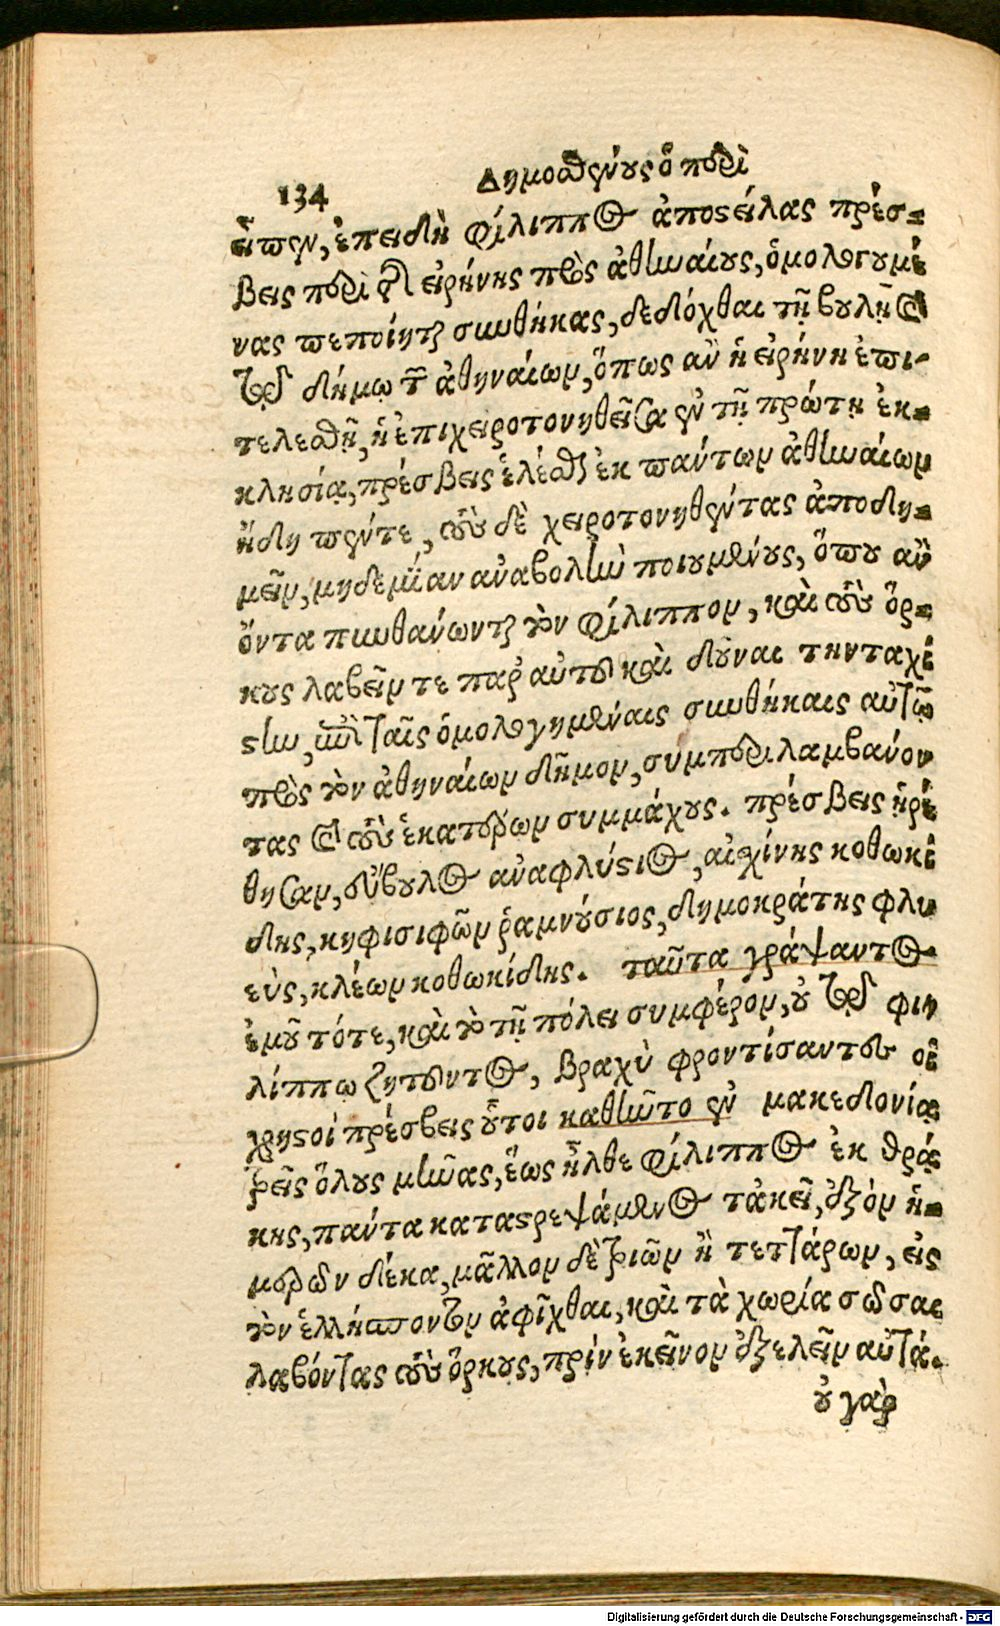 134
Δημοσθένους ὁ περὶ
εἶπεν, ἐπειδὴ φίλιππος ἀποστείλας πρέσ-
βεις περὶ τῆς εἰρήνης πρὸς ἀθηναίους, ὁμολογουμέ
νας πεποίηται συνθήκας, δεδόχθαι τῇ βουλῇ καὶ
τῷ δήμῳ τῶν ἀθηναίων, ὅπως ἂν ἡ εἰρήνη ἐπι-
τελεσθῇ, ἡ ἐπιχειροτονηθεῖσα ἐν τῇ πρώτῃ ἐκ-
κλησίᾳ, πρέσβεις ἑλέσθαι ἐκ πάντων ἀθηναίων
ἤδη πέντε, τοὺς δὲ χειροτονηθέντας ἀποδη-
μεῖν, μηδεμίαν ἀναβολὴν ποιουμένους, ὅπου ἂν
ὄντα πυνθάνωνται τὸν φίλιππον, καὶ τοὺς ὅρ-
κους λαβεῖν τε παρ' αὐτοῦ καὶ δοῦναι τὴν ταχί
στην, ἐπὶ ταῖς ὁμολογημέναις συνθήκαις αὐτῷ
πρὸς τὸν ἀθηναίων δῆμον, συμπεριλαμβάνον
τας καὶ τοὺς ἑκατέρων συμμάχους. πρέσβεις ᾑρέ
θησαν, εὔβουλος ἀναφλύστιος, αἰσχίνης κοθωκί
δης, κηφισιφῶν ῥαμνούσιος, δημοκράτης φλυ
εὺς, κλέων κοθωκίδης. ταῦτα γράψαντος
ἐμοῦ τότε, καὶ τὸ τῇ πόλει συμφέρον, οὐ τῷ φιλ
λίππῳ ζητοῦντος, βραχὺ φροντίσαντες οἱ
χρηστοὶ πρέσβεις οὗτοι καθῆντο ἐν μακεδονίᾳ
τρεῖς ὅλους μῆνας, ἕως ἦλθε φίλιππος ἐκ θρά
κης, πάντα καταστρεψάμενος τἀκεῖ, ἐξὸν ἡ-
μερῶν δέκα, μᾶλλον δὲ τριῶν ἢ τεττάρων, εἰς
τὸν ἑλλήσποντον ἀφῖχθαι, καὶ τὰ χωρία σῶσαι
λαβόντας τοὺς ὅρκους, πρὶν ἐκεῖνον ἐξελεῖν αὐτά.
οὐ γὰρ
Digitalisierung gefördert durch die Deutsche Forschungsgemeinschaft - DFG